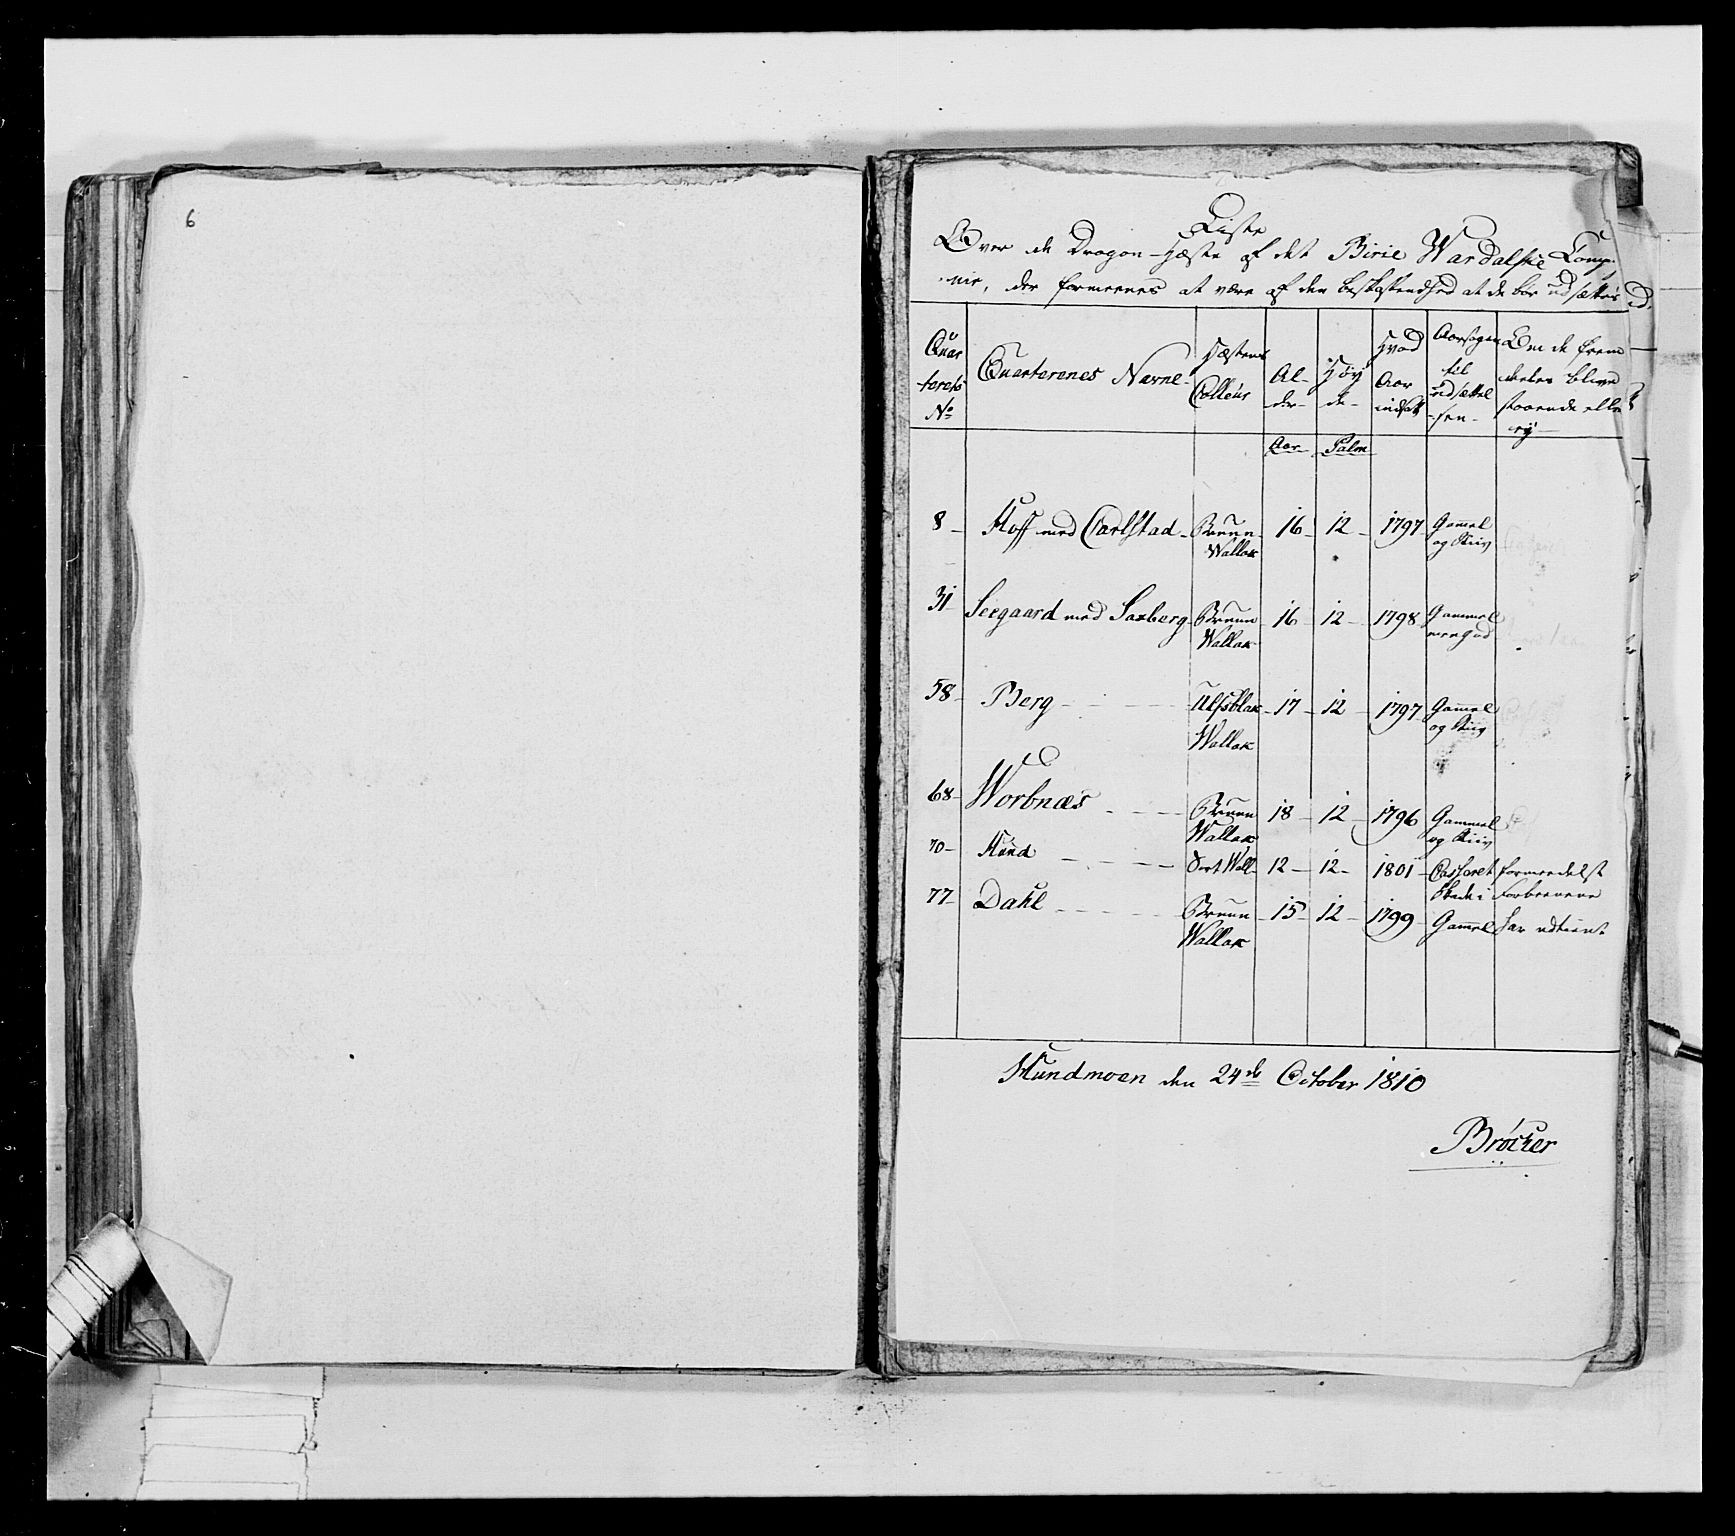 6
Liste
Over de Dragon-Hæste af det Birie Wardalske Comp-
nie, der formeenes at være af den beskaffenhed at de bør udsættes
Quar
terets
No
Quarterenes Navne
Hæstens
Colleur
Al-
der
Høy
de
Hvad
Aar
indsatt
Aarsagen
til
udsættel
sen
Om de frem
deeles blive
staaende eller
ey
Aar Palm
8 Hoff med Carlstad Bruun Wallak 16 12 1797 Gammel og Stiiv
31 Seegaard med Saxberg Bruun Wallak 16 12 1798 Gammel
58 Berg Ulfsblak Wallak 17 12 1797 Gammel og Stiiv
68 Worbnæs Bruun Wallak 18 12 1796 Gammel og Stiiv
70 Hund Sort Wall 12 12 1801 Casseret formedelst Skade i Forbenene
77 Dahl Bruun Wallak 15 12 1799 Gammel har udtient
Hundmoen den 24de October 1810
Bröcker